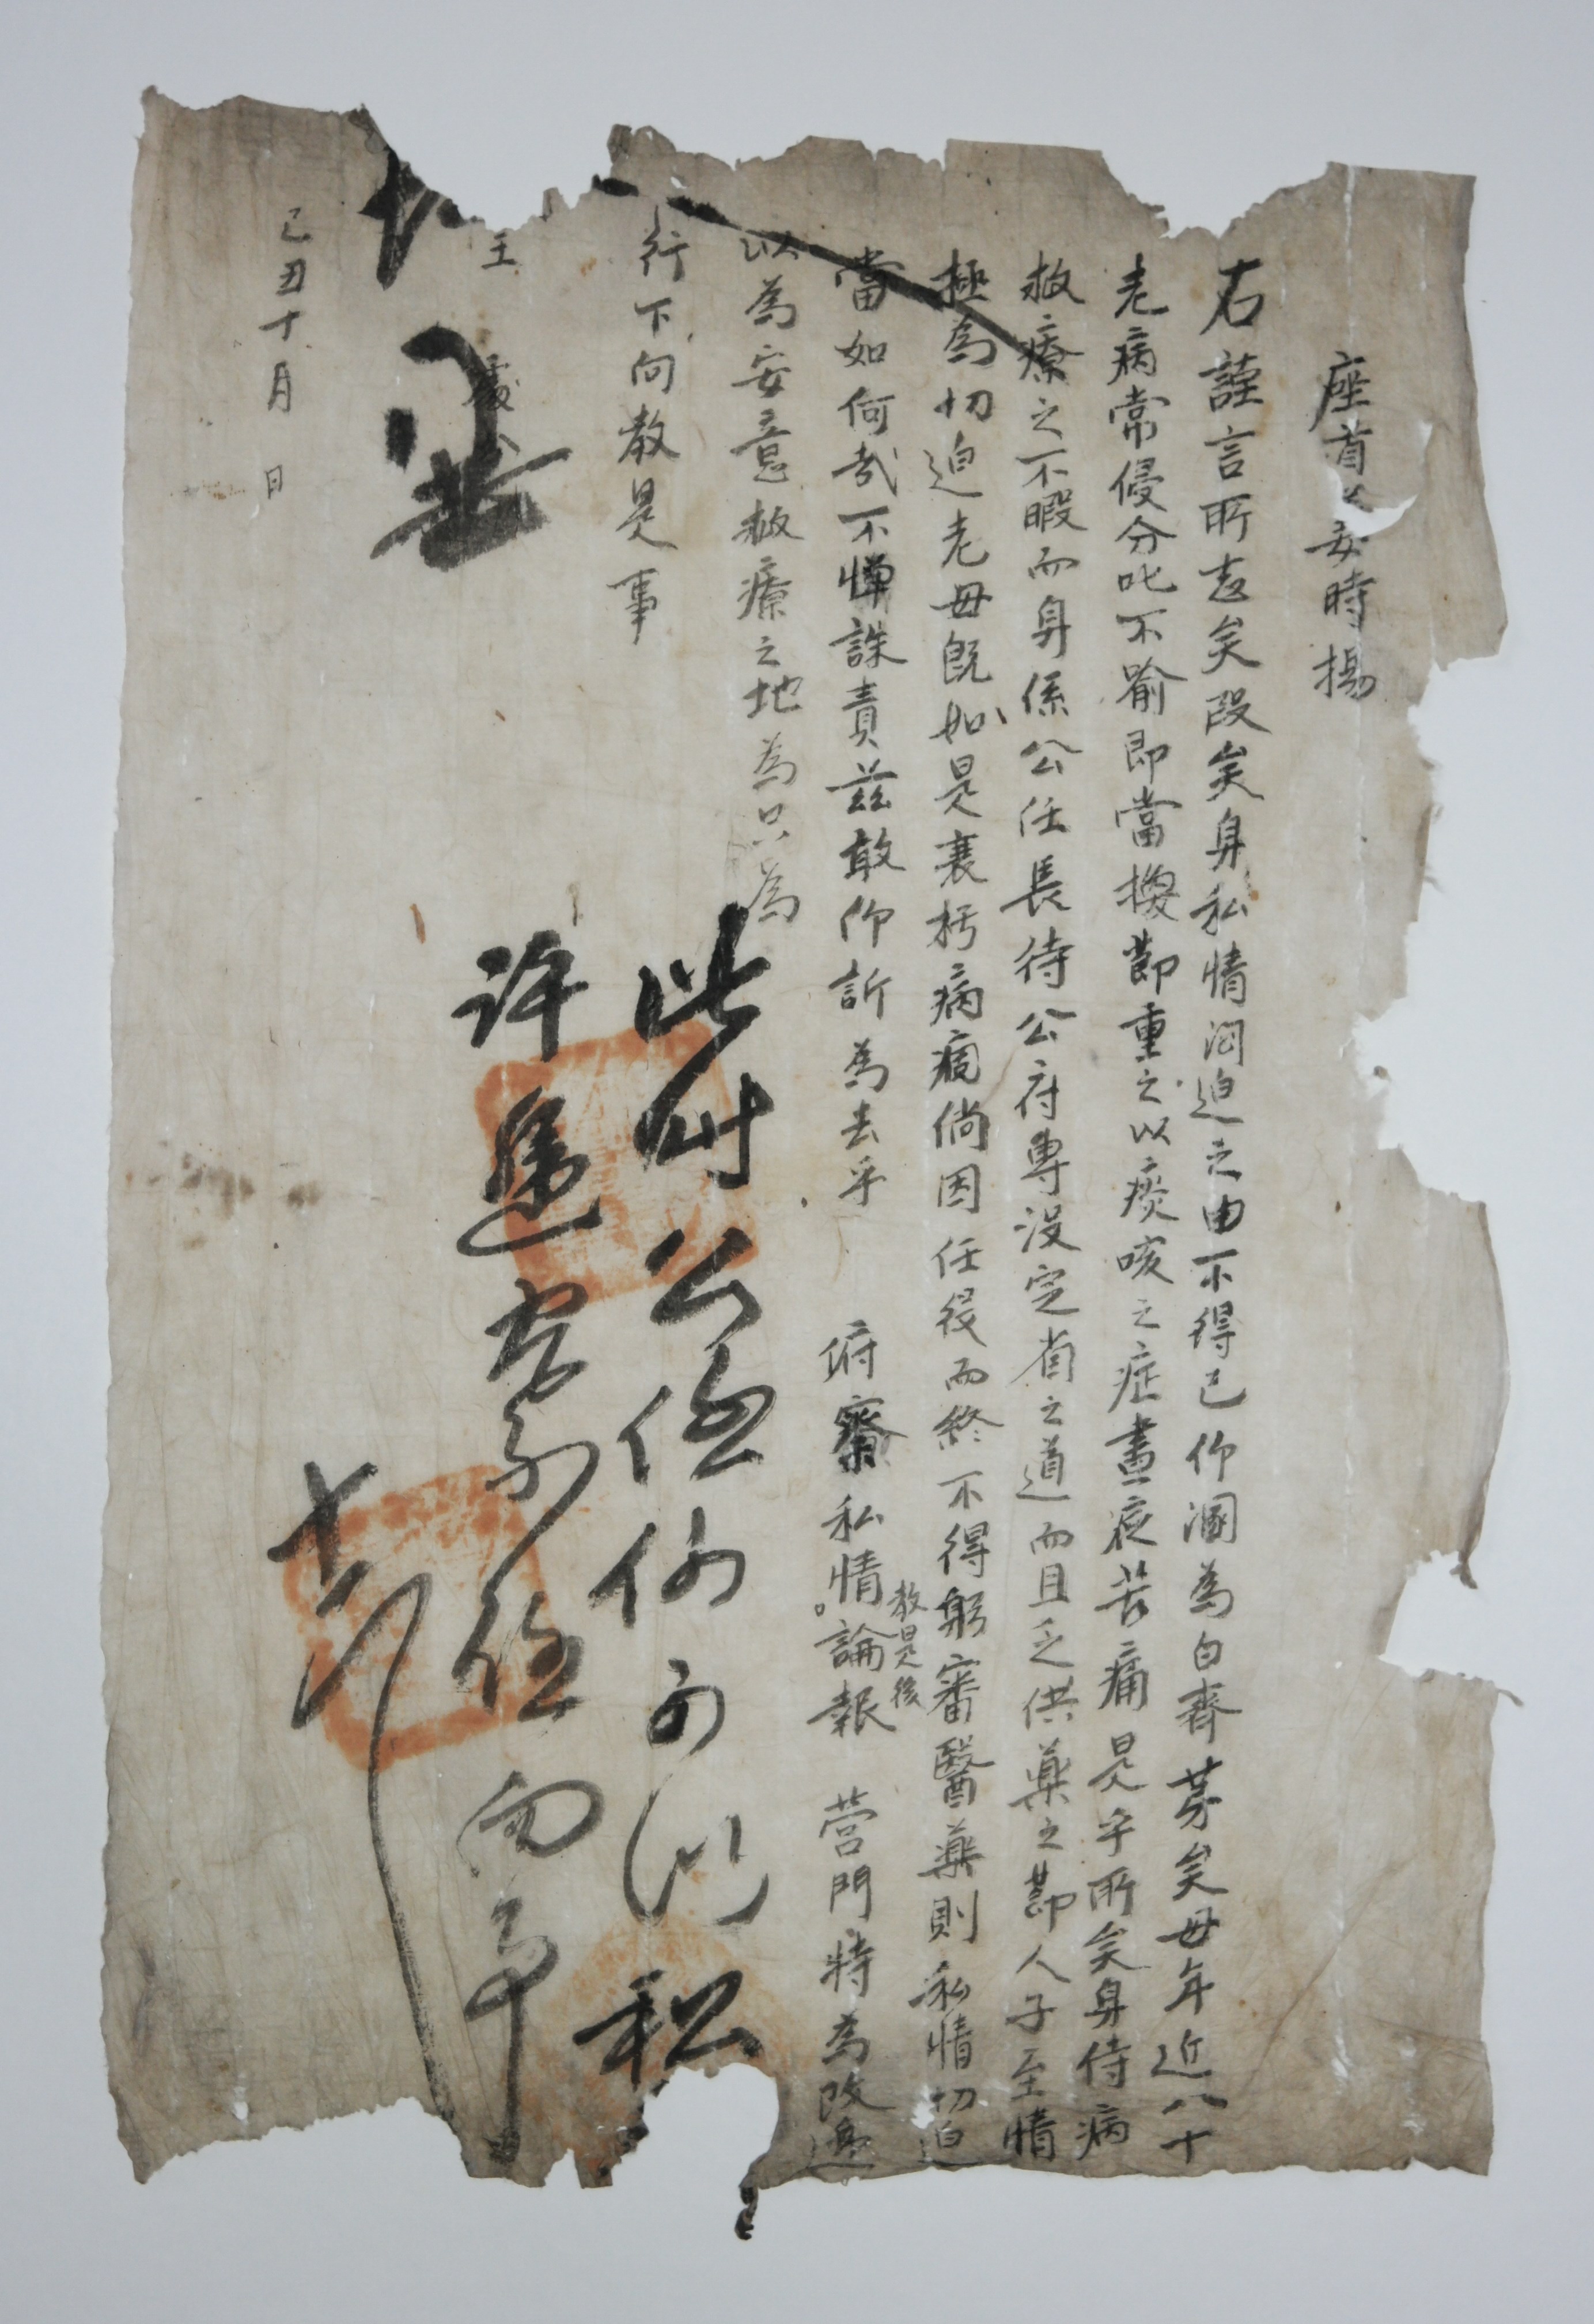 座首安時揚
右謹言所志矣段矣身私情悶迫之由不得已仰溷為白齊蓋矣母年近八十
老病常侵分叱不喩即當換節重之以痰咳之症晝夜苦痛是乎所矣身侍病
救療之不暇而身係公任長待公府專沒定省之道而且乏供藥之節人子至情
極為切迫老母既如是衰朽病痼倘因任役而終不得躬審醫藥則私情切迫
當如何哉不憚誅責茲敢仰訴為去乎 俯察私情教是後論報 營門特為改遞
以為安意救療之地為只為
行下向教是事
主 處分
己丑十月 日
此時公
私
許遞
向事